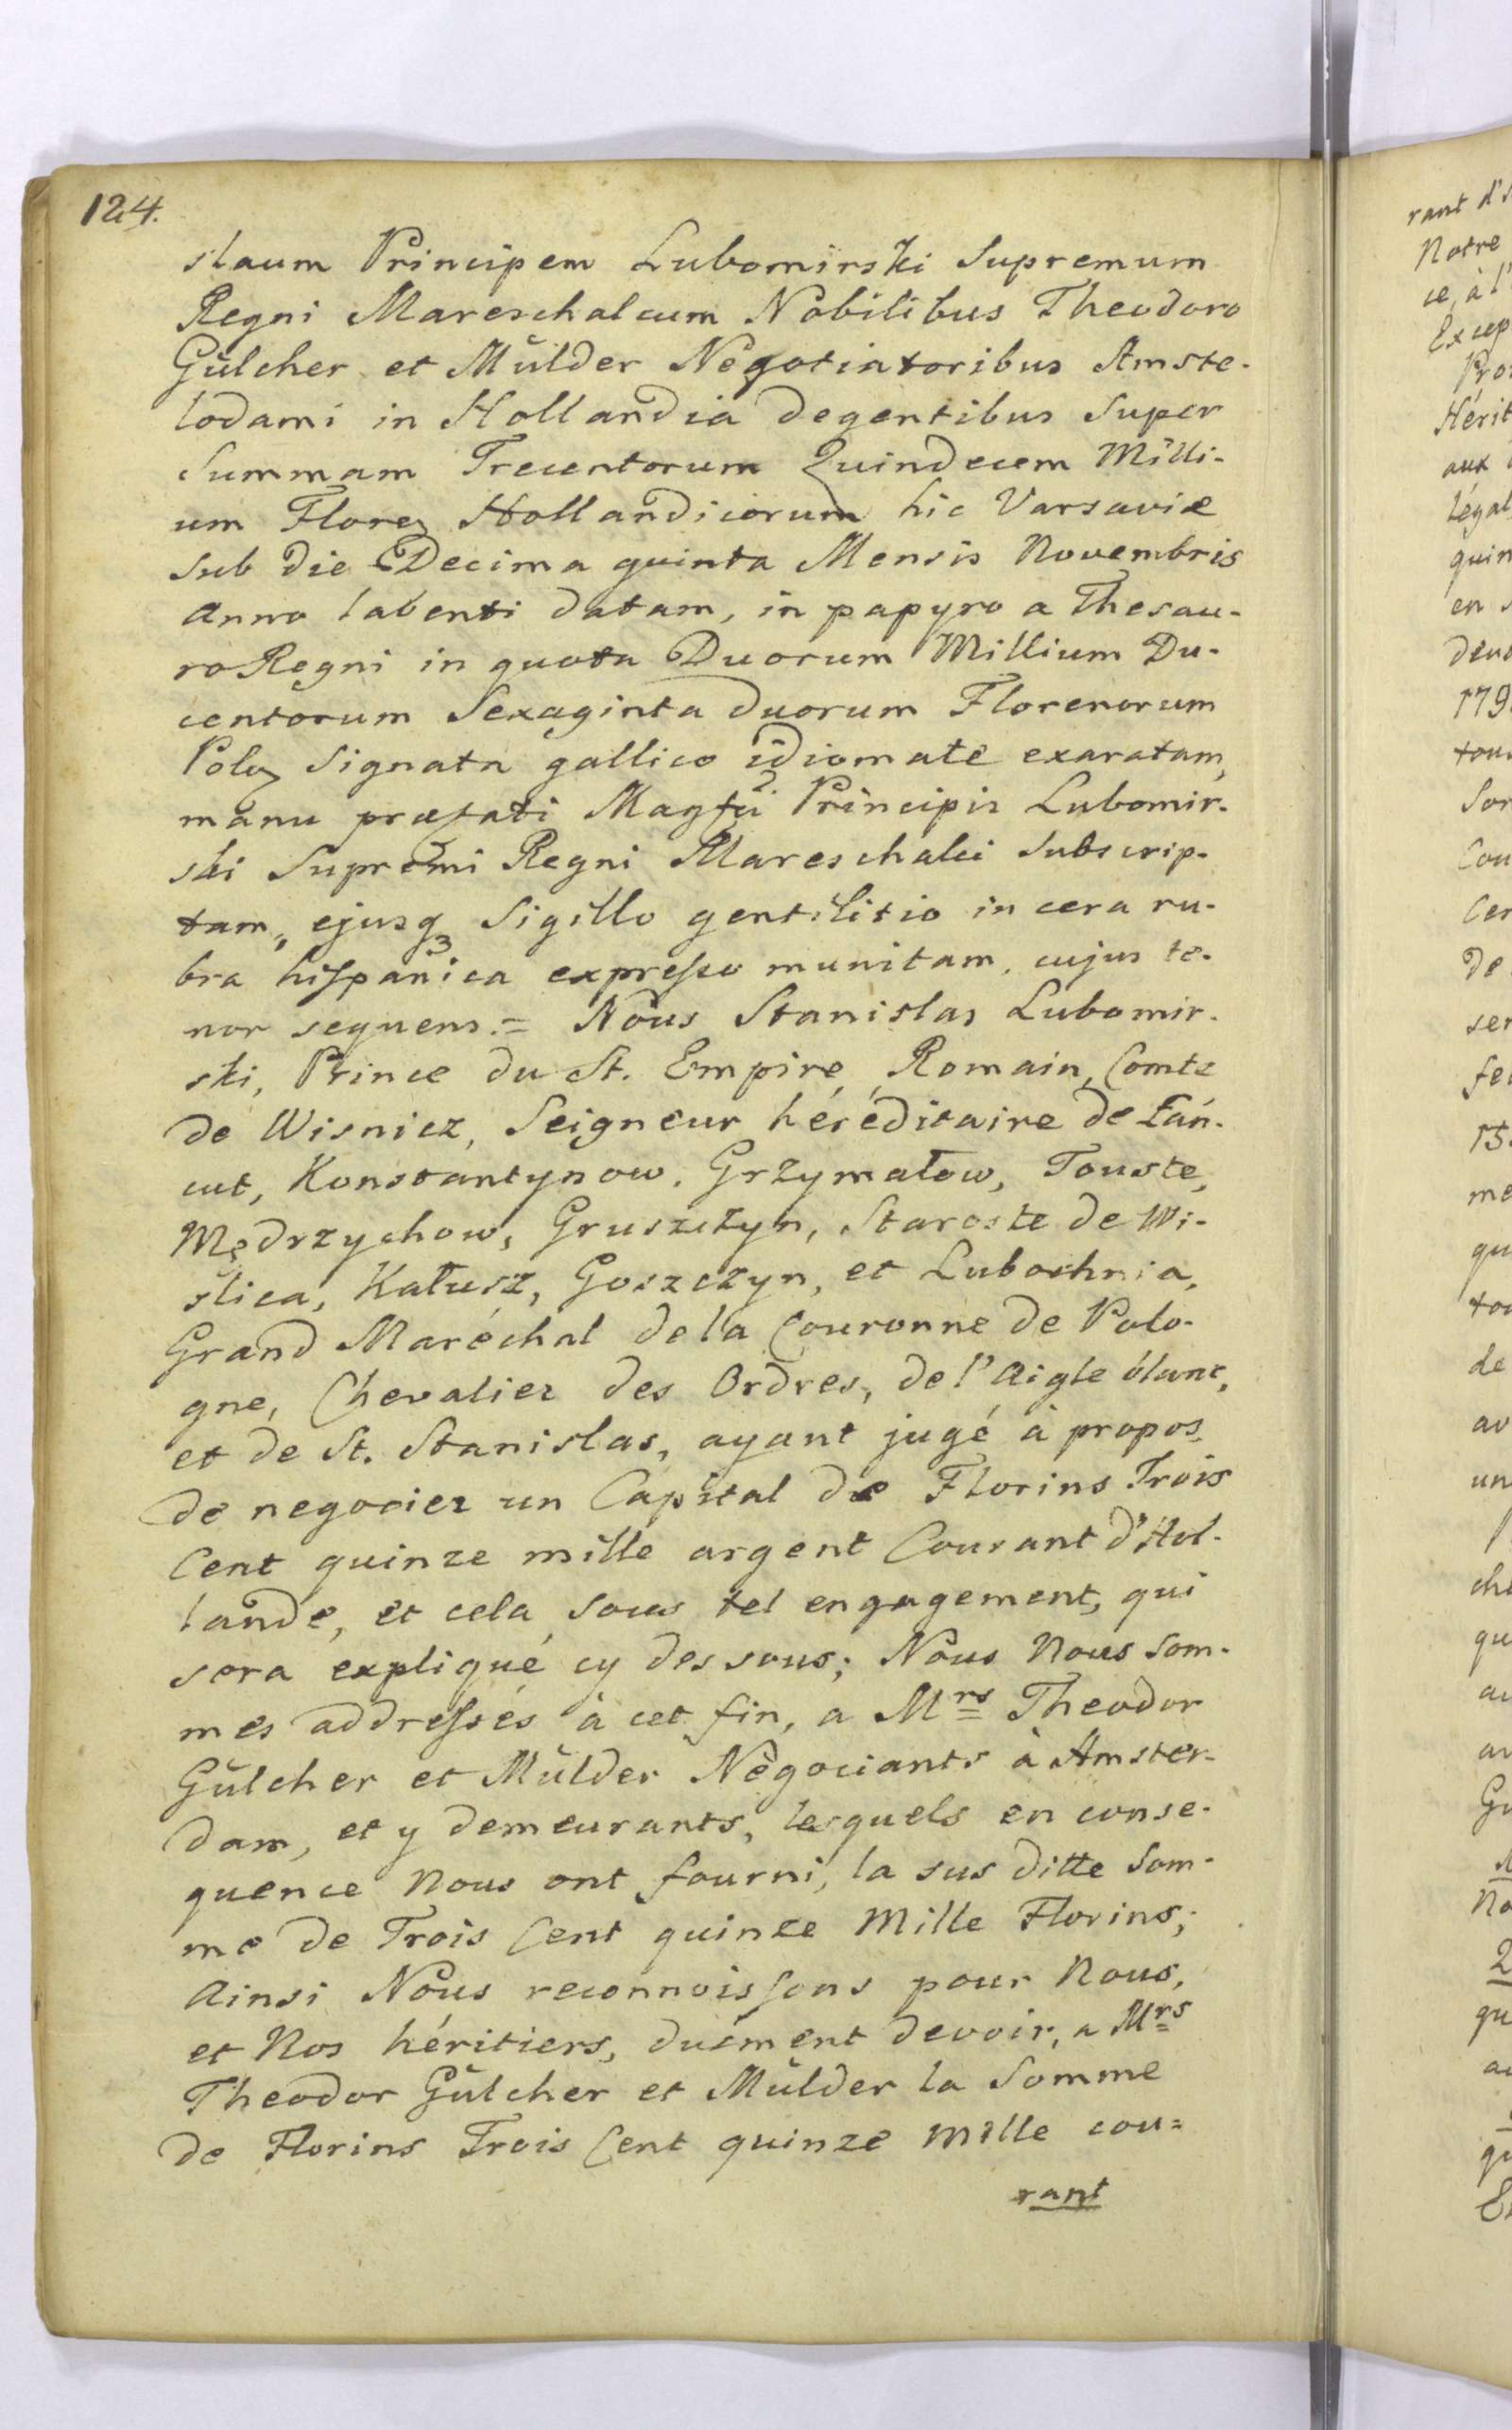 124.
slaum Principem Lubomirski Supremum
Regni Mareschalcum Nobilibus Theodoro
Gülcher et Mülder Negotiatoribus Amste-
lodami in Hollandia degentibus Super
Summam Trecentorum Quindecem Milli-
um Floreꝫ Hollandicorum hic Varsaviæ
Sub die Decima quinta Mensis Novembris
Anno labenti datam, in papyro a Thesau-
ro Regni in quota Duorum Millium Du-
centorum Sexaginta duorum Florenorum
Poloꝫ Signata gallico idiomate exaratam,
manu præfati Magfci Principis Lubomir-
ski Supremi Regni Mareschalci Subscrip-
tam, ejusqꝫ Sigillo gentilitio in cera ru-
bra hispanica expresso munitam, cujus te-
nor sequens. = Nous Stanislas Lubomir-
ski, Prince du St. Empire, Romain, Comte
de Wisnicz, Seigneur héréditaire de Łań-
cut, Konstantynow, Grzymałow, Touste,
Mędrzychow, Gruszczyn, Staroste de Wi-
slica, Kałusz, Goszczyn, et Lubochnia,
Grand Maréchal de la Couronne de Polo-
gne, Chevalier des Ordres, de l'Aigle blanc,
et de St. Stanislas, ayant jugé à propos
de negocier un Capital de Florins Trois
Cent quinze mille argent Courant d'Hol-
lande, et cela sous tel engagement, qui
sera expliqué cy dessous; Nous Nous som-
mes addressés à cet fin, a Mrs Theodor
Gülcher et Mülder Négociants à Amster-
dam, et y demeurants, lesquels en conse-
quence Nous ont fourni, la sus ditte Som-
me de Trois Cent quinze Mille Florins;
Ainsi Nous reconnoissons pour Nous,
et Nos héritiers, duëment devoir, a Mrs
Theodor Gülcher et Mülder la Somme
de Florins Trois Cent quinze Mille cou=
rant